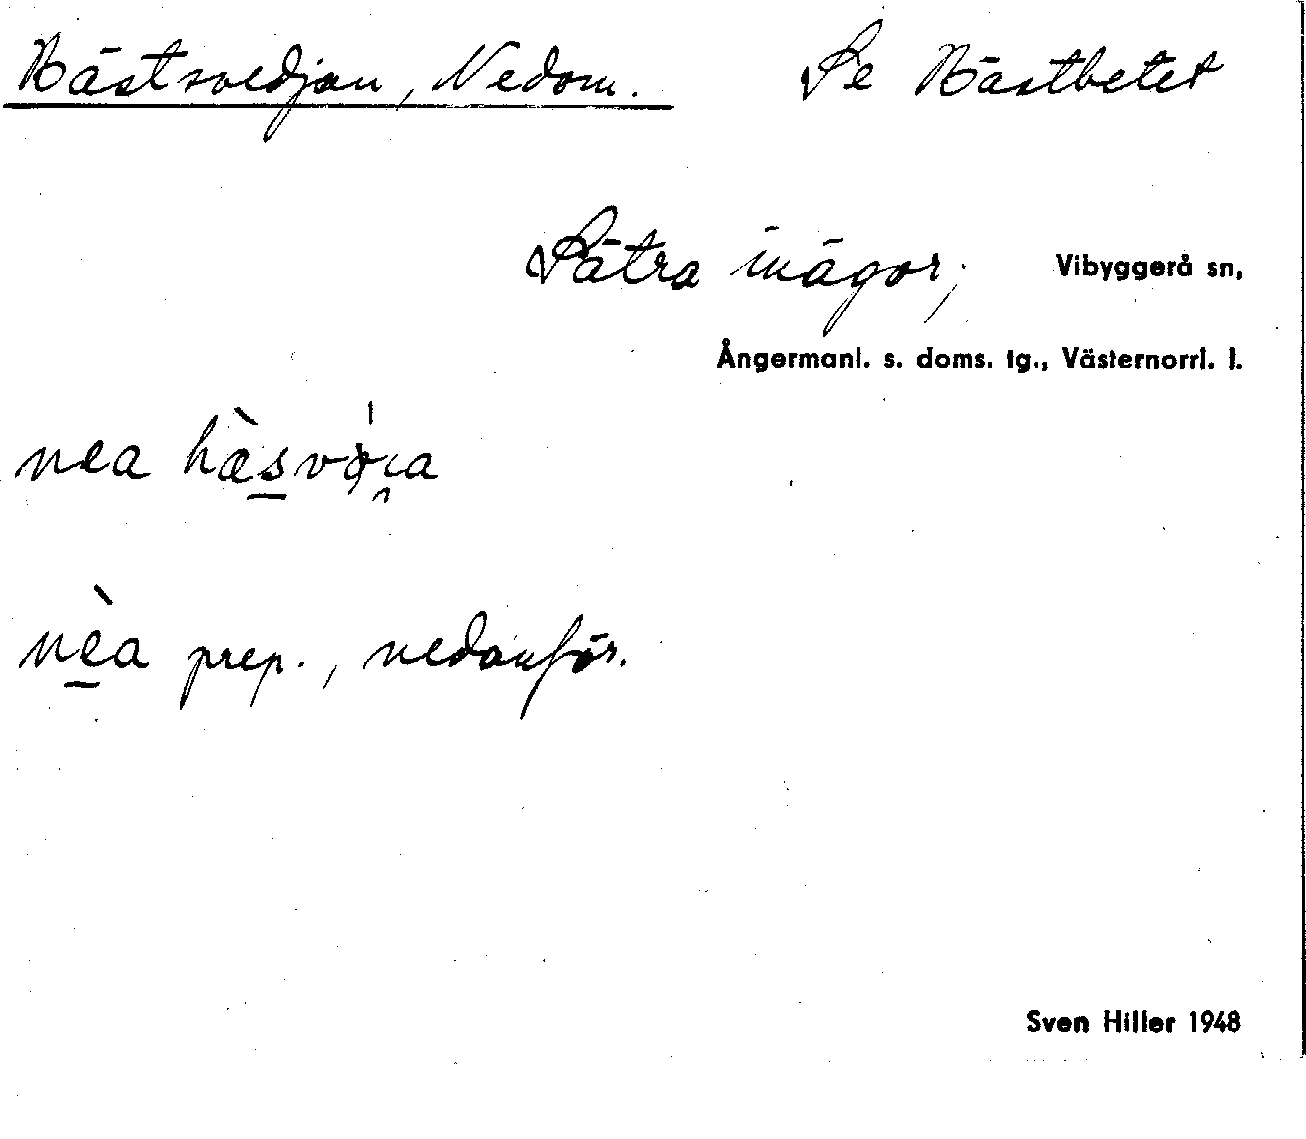 Hästsvedjan, Nedom. Se Hästbetet
Sätra inägor, Vibyggerå sn,
Ångermanl. s. doms. tg., Västernorrl. l.
nea
nèa prep., nedanför.
Sven Hiller 1948